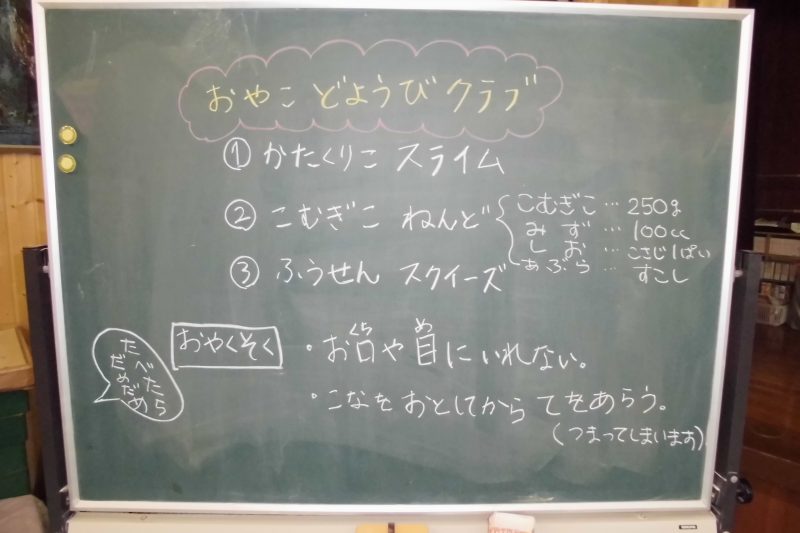 おやこ どようび クラブ
① かたくりこ スライム
② こむぎこ ねんど
こむぎこ … 250g
みず … 100cc
しお … こさじ1ぱい
あぶら … すこし
③ ふうせん スクイーズ
おやくそく
くち め
・お口や目にいれない。
・こなを おとしてから てをあらう。
(つまってしまいます)
たべたら
だめだめ